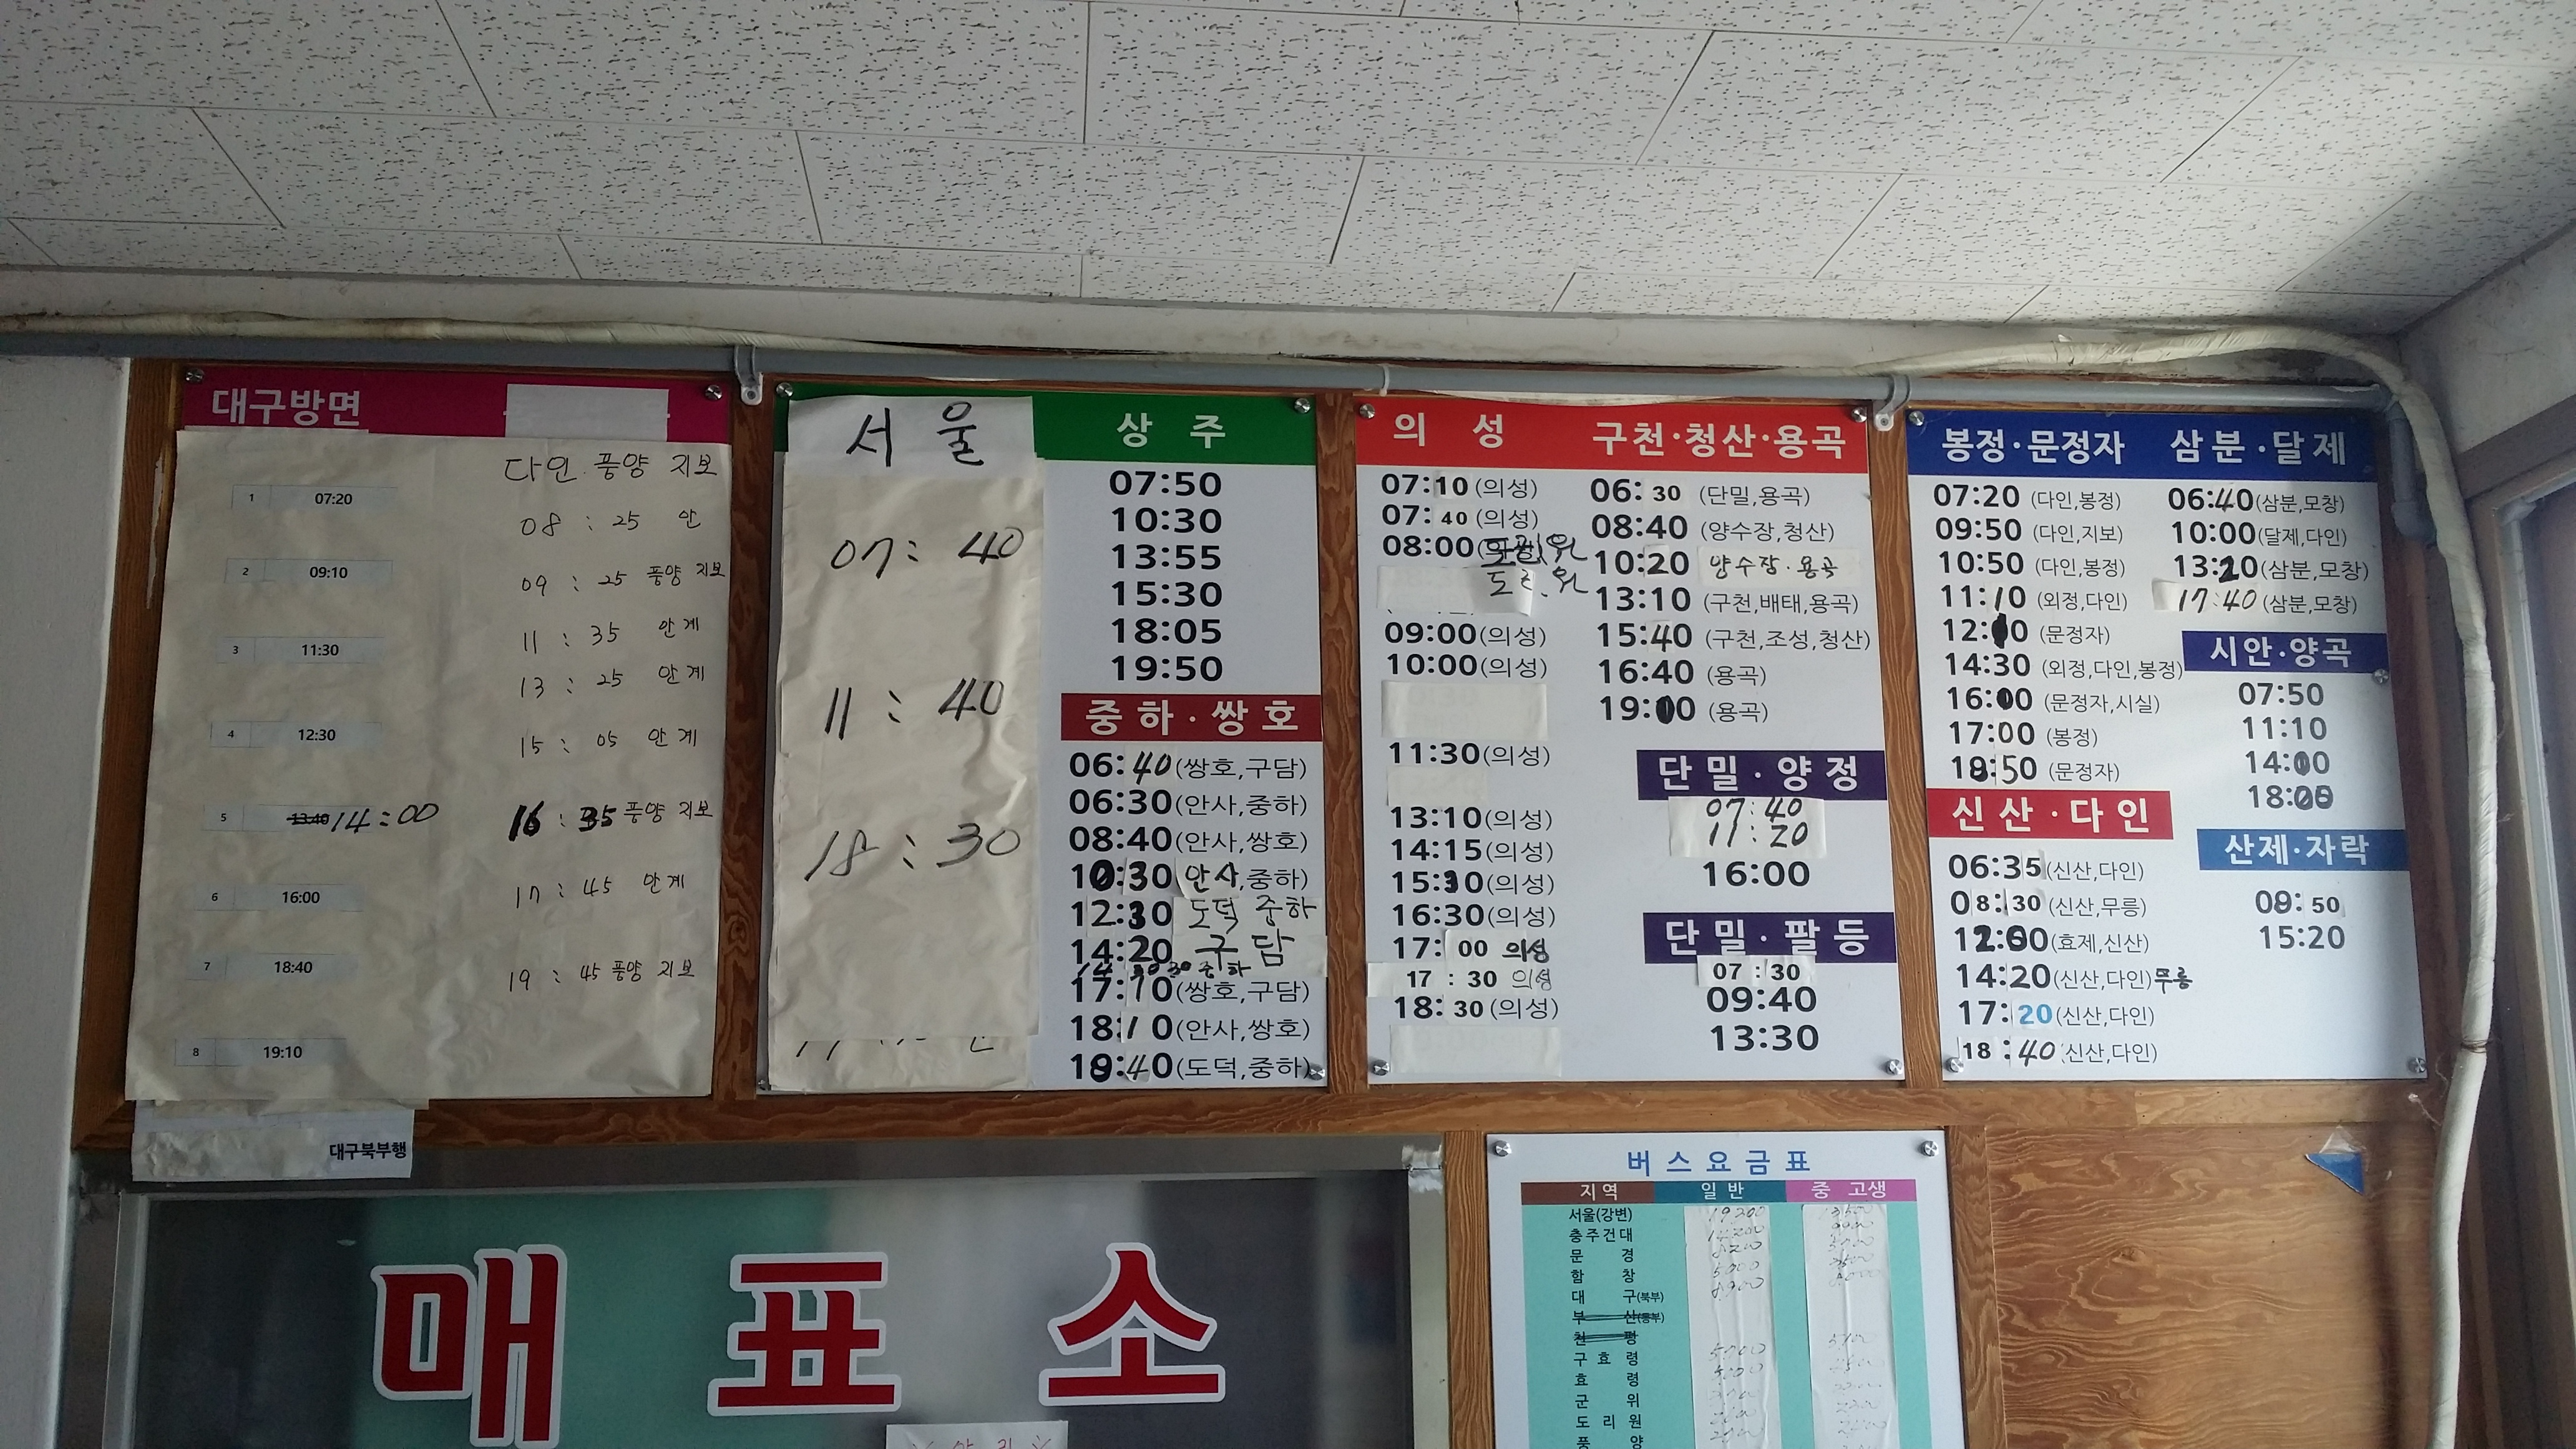 대구방면
1 07:20
2 09:10
3 11:30
4 12:30
5 13:40 14:00
6 16:00
7 18:40
8 19:10
대구북부행
다인 풍양 지보
08 : 25 안
09 : 25 풍양 지보
11 : 35 안계
13 : 25 안계
15 : 05 안계
16 : 35 풍양 지보
17 : 45 안계
19 : 45 풍양 지보
서울
07 : 40
11 : 40
18 : 30
상 주
07:50
10:30
13:55
15:30
18:05
19:50
중하·쌍호
06:40(쌍호,구담)
06:30(안사,중하)
08:40(안사,쌍호)
10:30 안사,중하)
12:30 도덕 중하
14:20 구담
17:10(쌍호,구담)
18:10(안사,쌍호)
19:40(도덕,중하)
의 성
07:10(의성)
07:40(의성)
08:00
도리원
09:00(의성)
10:00(의성)
11:30(의성)
13:10(의성)
14:15(의성)
15:30(의성)
16:30(의성)
17:00 의성
17:30 의성
18:30(의성)
구천·청산·용곡
06:30 (단밀,용곡)
08:40 (양수장,청산)
10:20 양수장·용곡
13:10 (구천,배태,용곡)
15:40 (구천,조성,청산)
16:40 (용곡)
19:00 (용곡)
단밀·양정
07:40
11:20
16:00
단밀·팔등
07:30
09:40
13:30
봉정·문정자
07:20 (다인,봉정)
09:50 (다인,지보)
10:50 (다인,봉정)
11:10 (외정,다인)
(문정자)
14:30 (외정,다인,봉정)
16:00 (문정자,시실)
17:00 (봉정)
18:50 (문정자)
신산·다인
06:35(신산,다인)
08:30(신산,무릉)
12:00(효제,신산)
14:20(신산,다인)무릉
17:20(신산,다인)
18:40(신산,다인)
삼분·달제
06:40(삼분,모창)
10:00(달제,다인)
13:20(삼분,모창)
17:40(삼분,모창)
시안·양곡
07:50
11:10
14:00
18:00
산제·자락
09:50
15:20
매표소
버스요금표
지역 일반 중고생
서울(강변) 19,200
충주건대
문경
함창 5000
대구(북부)
부산(동부)
천평
구효령
효령
군위
도리원
풍양